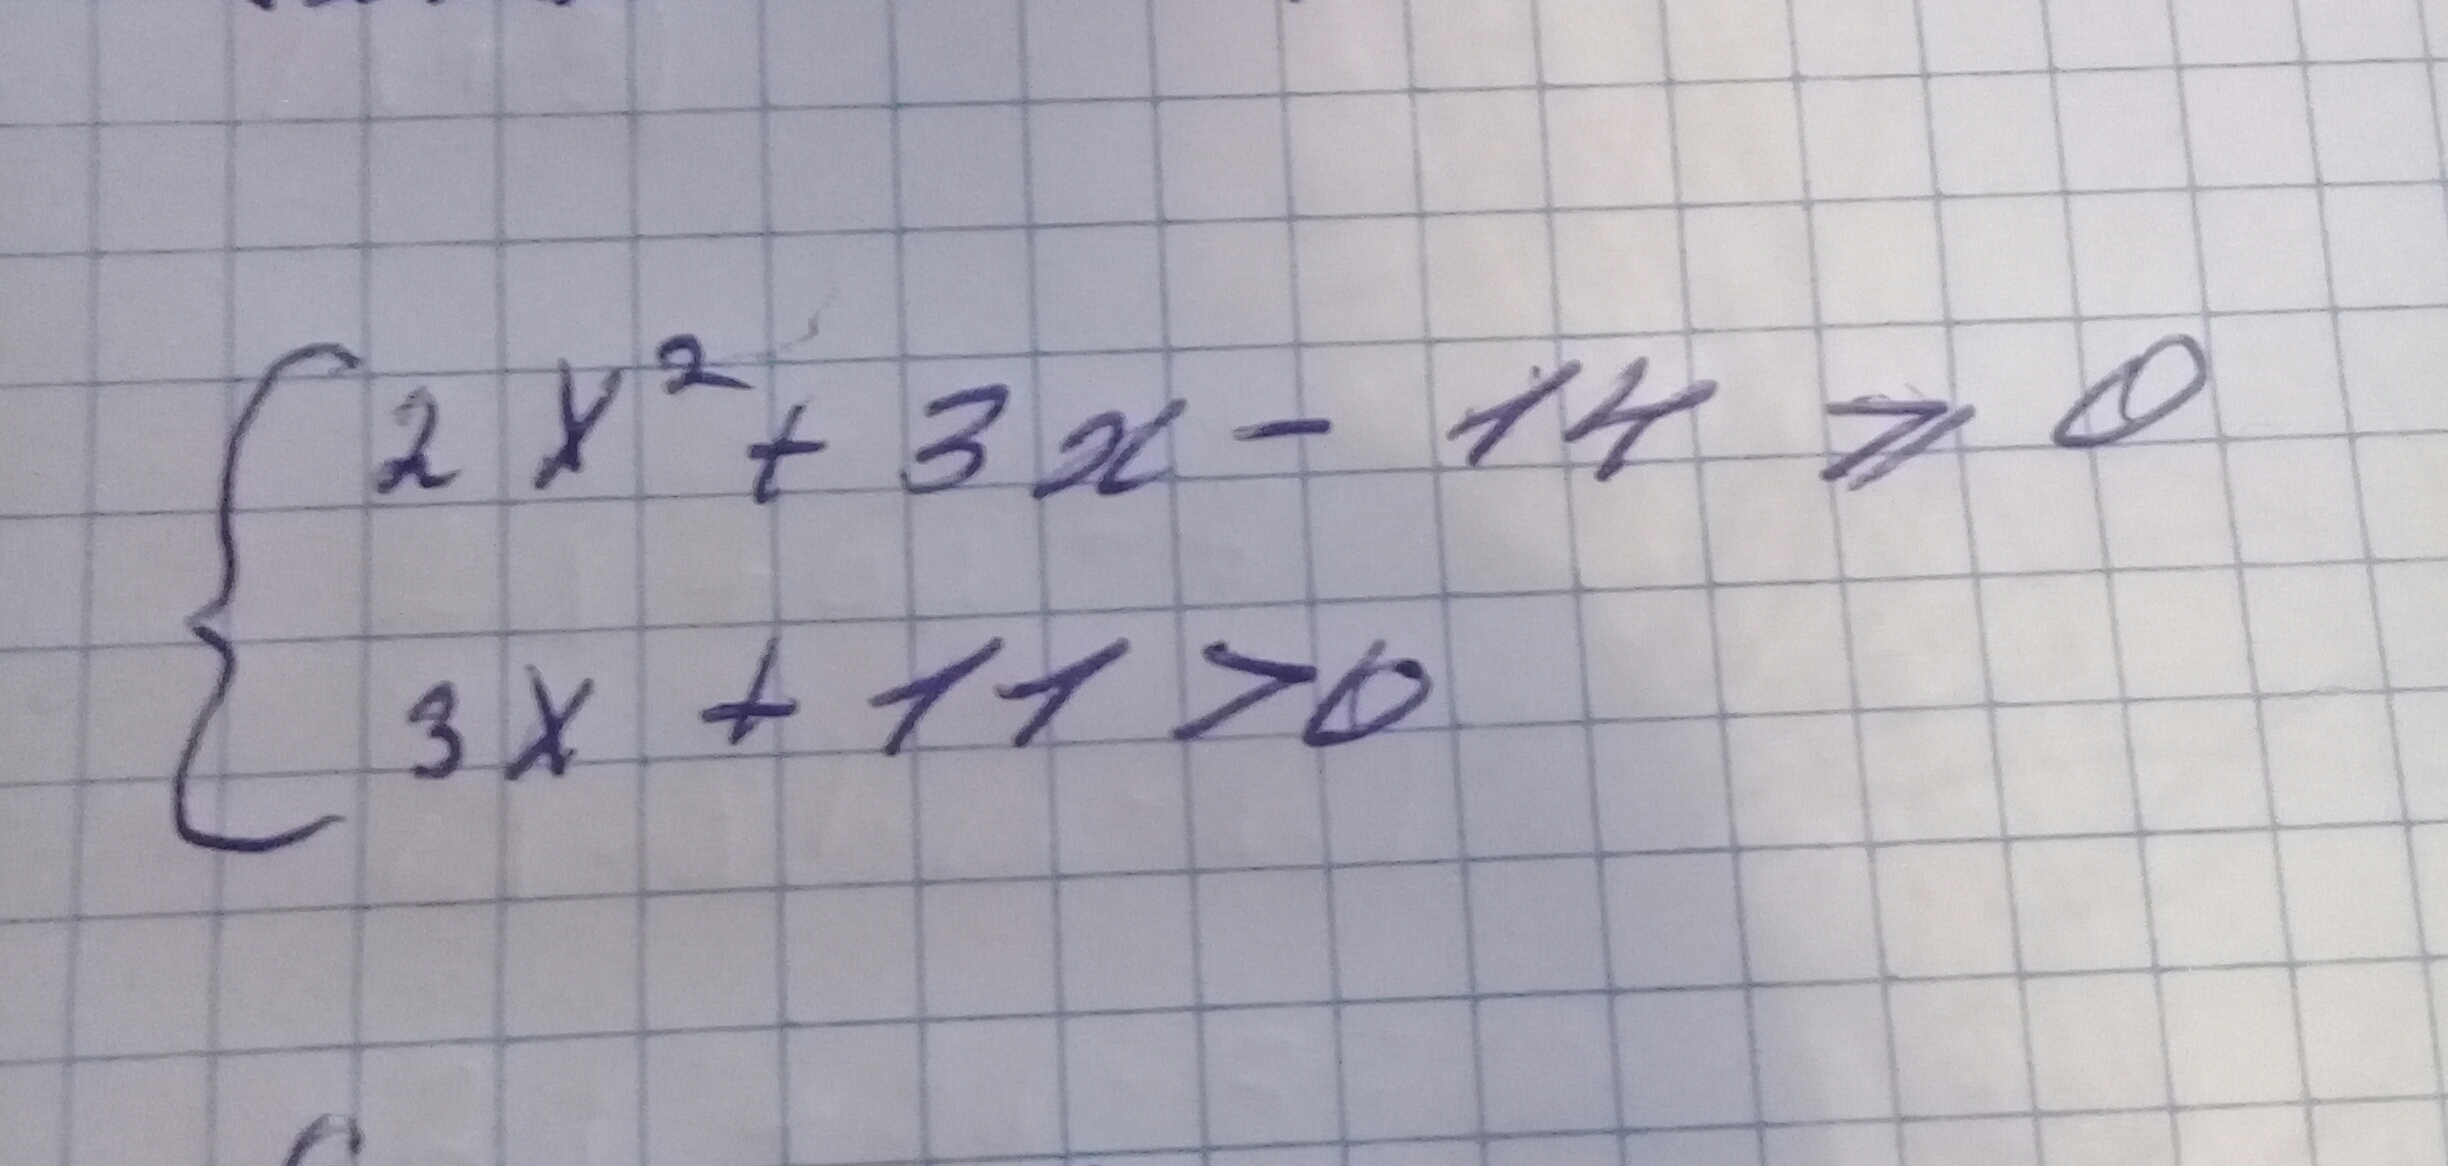 2x² + 3x - 14 ⩾ 0
3x + 11 > 0